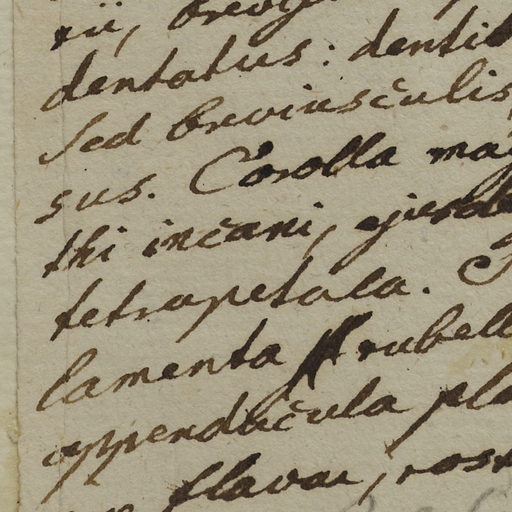 rii, brevi
dentatus: denti
sed breviusculis,
sus. Corolla mag
thi incani, ejusde
tetrapetala.
lamenta rubell
appendicula pla
flavae, ros